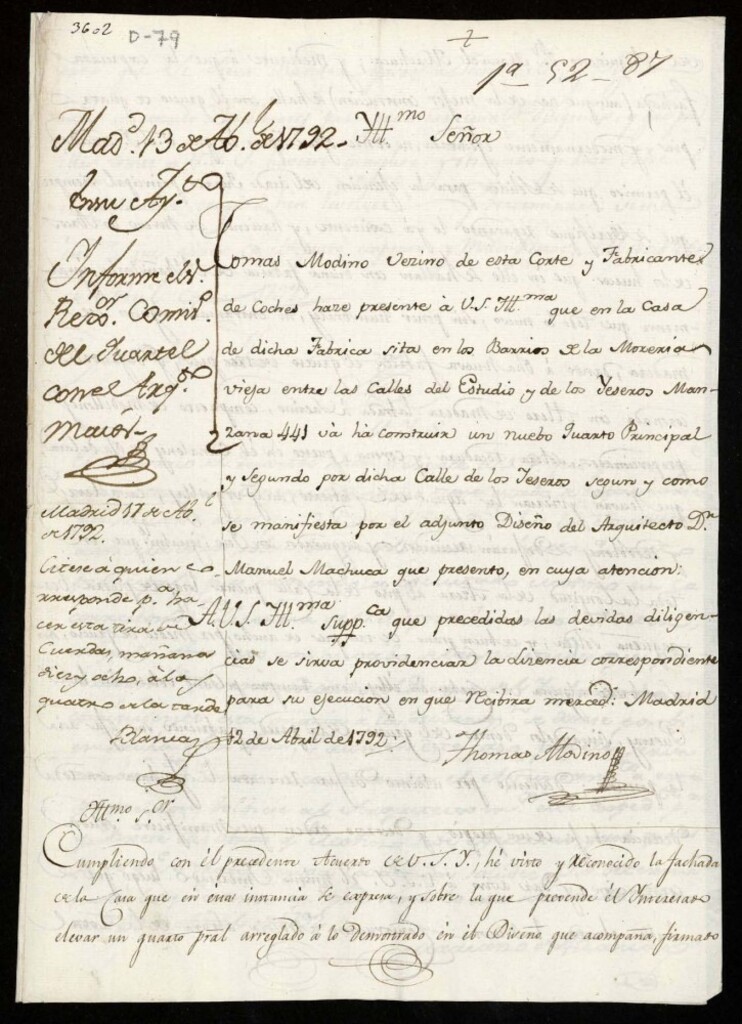 3602 D-79
1ª 52-87
Mad.d 13 de Ab.l de 1792.
En su Ay.to
Informe el s.
Rex.or Comis.o
del Quartel
con el Arq.to
maior.
Madrid 17 de Ab.l
de 1792.
Citese á quien co-
rresponde p.a ha-
cer esta tira de
Cuerdas, mañana
diez y ocho, à las
quatro de la tarde
Blanca
Ill.mo Señor
Tomas Modino Vezino de esta Corte y Fabricante
de Coches haze presente à V.S. Ill.ma que en la Casa
de dicha Fabrica sita en los Barrios de la Moreria
vieja entre las Calles del Estudio y de los Yeseros Man-
zana 441 và hà construir un nuebo Quarto Principal
y segundo por dicha Calle de los Yeseros segun y como
se manifiesta por el adjunto Diseño del Arquitecto D.n
Manuel Machuca que presento, en cuya atencion:
A.V.S. Ill.ma Supp.ca que precedidas las devidas diligen-
cias se sirva providenciar la lizencia correspondiente
para su ejecucion en que Recibira merced: Madrid
12 de Abril de 1792.
Thomas Modino
Ill.mo S.or
Cumpliendo con él precedente Acuerdo de V.S.Y. hé visto y reconocido la fachada
de la Casa que en esta instancia se expresa, y sobre la que pretende él Interesado
elevar un quarto pral arreglado à lo Demostrado en él Diseño que acompaña, firmado